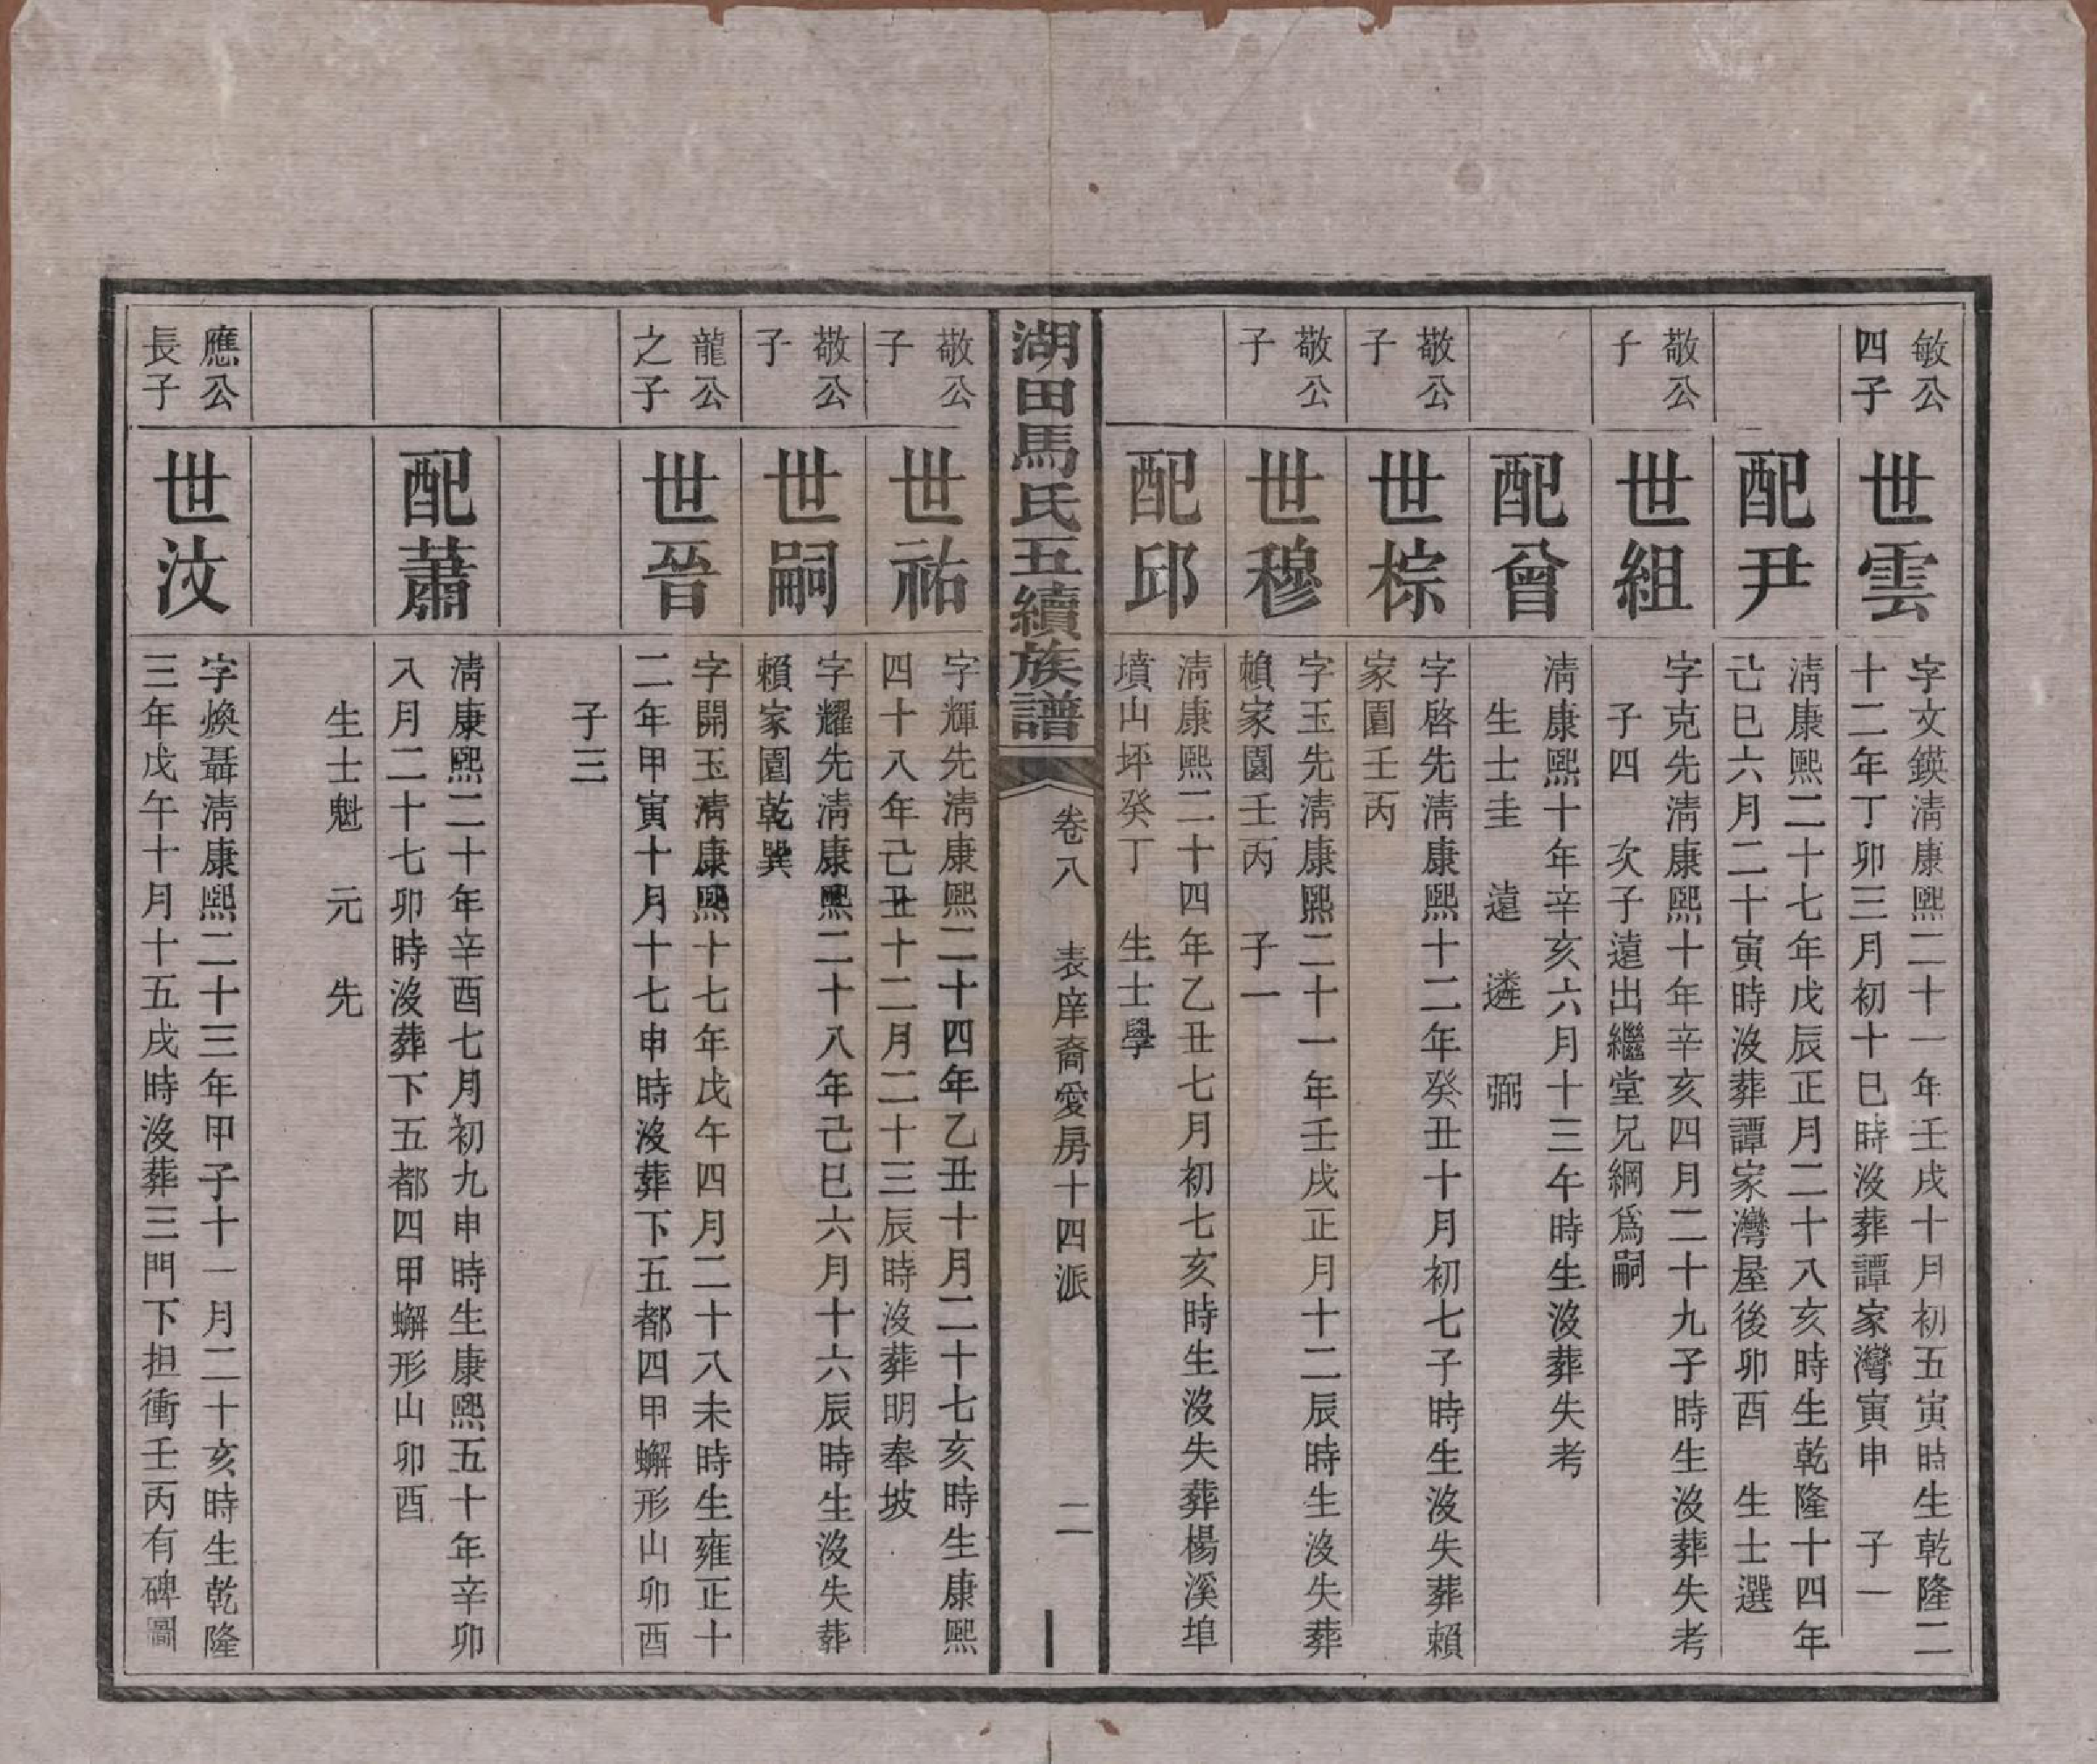 敏公
四子
世雲
字文鍈淸康熙二十一年壬戌十月初五寅時生乾隆二
十二年丁卯三月初十巳時沒葬譚家灣寅申　子一
配尹
淸康熙二十七年戊辰正月二十八亥時生乾隆十四年
己巳六月二十寅時沒葬譚家灣屋後卯酉　生士選
敬公
子
世組
字克先淸康熙十年辛亥四月二十九子時生沒葬失考
子四　次子遠出繼堂兄綱爲嗣
配曾
淸康熙十年辛亥六月十三午時生沒葬失考
生士圭　遠　遴　弼
敬公
子
世棕
字啓先淸康熙十二年癸丑十月初七子時生沒失葬賴
家園壬丙
敬公
子
世穆
字玉先淸康熙二十一年壬戌正月十二辰時生沒失葬
賴家園壬丙　子一
配邱
淸康熙二十四年乙丑七月初七亥時生沒失葬楊溪埠
墳山坪癸丁　生士學
湖田馬氏五續族譜
卷八　表庠裔愛房十四派　二
敬公
子
世祐
字輝先淸康熙二十四年乙丑十月二十七亥時生康熙
四十八年己丑十二月二十三辰時沒葬明奉坡
敬公
子
世嗣
字耀先淸康熙二十八年己巳六月十六辰時生沒失葬
賴家園乾巽
龍公
之子
世晉
字開玉淸康熙十七年戊午四月二十八未時生雍正十
二年甲寅十月十七申時沒葬下五都四甲蠏形山卯酉
子三
配蕭
淸康熙二十年辛酉七月初九申時生康熙五十年辛卯
八月二十七卯時沒葬下五都四甲蠏形山卯酉
生士魁　元　先
應公
長子
世汶
字煥聶淸康熙二十三年甲子十一月二十亥時生乾隆
三年戊午十月十五戌時沒葬三門下担衝壬丙有碑圖